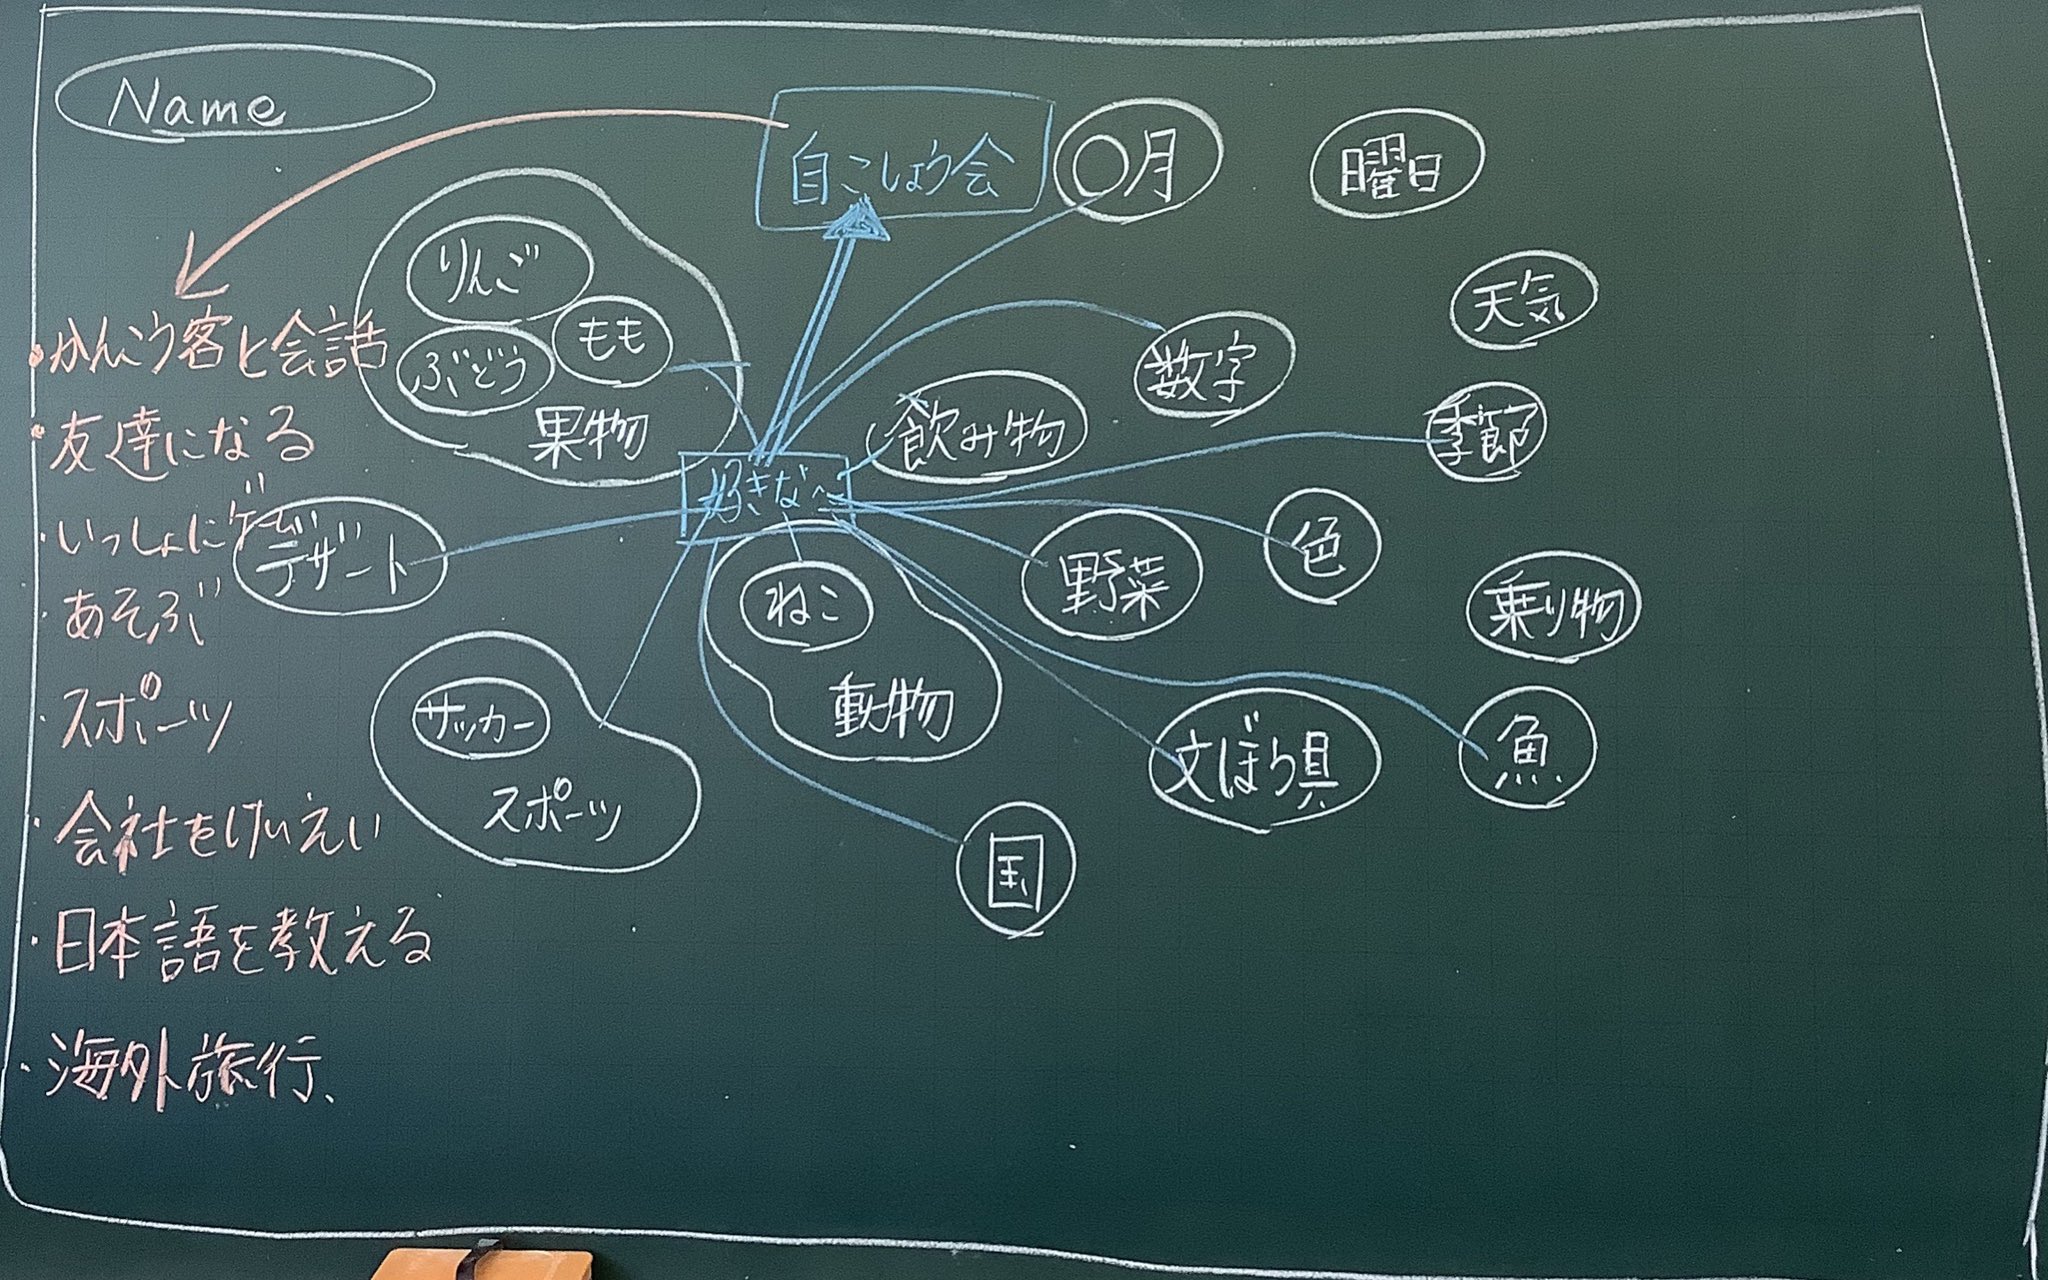 Name
自こしょう会
〇月
曜日
りんご
もも
ぶどう
果物
天気
数字
飲み物
季節
好きな〜
色
野菜
ねこ
動物
乗り物
魚
文ぼう具
国
デザート
サッカー
スポーツ
・かんこう客と会話
・友達になる
・いっしょにゲーム
・あそぶ
・スポーツ
・会社をけいえい
・日本語を教える
・海外旅行、